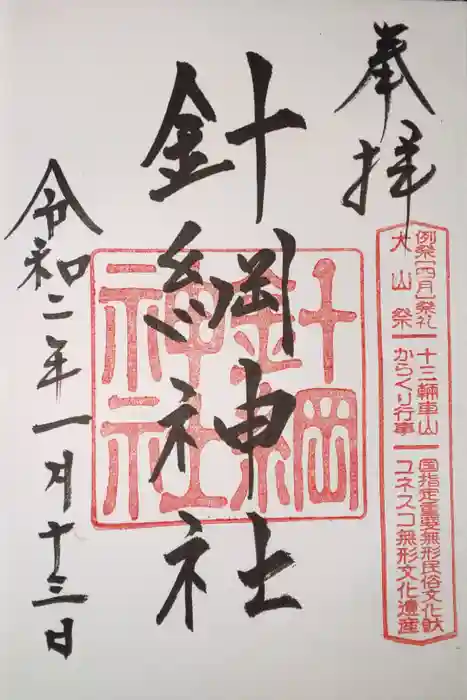 奉拝
例祭「四月」祭礼 十三輛車山 国指定重要無形民俗文化財
犬山祭 からくり行事 ユネスコ無形文化遺産
針綱神社
針綱
神社
令和二年一月十三日